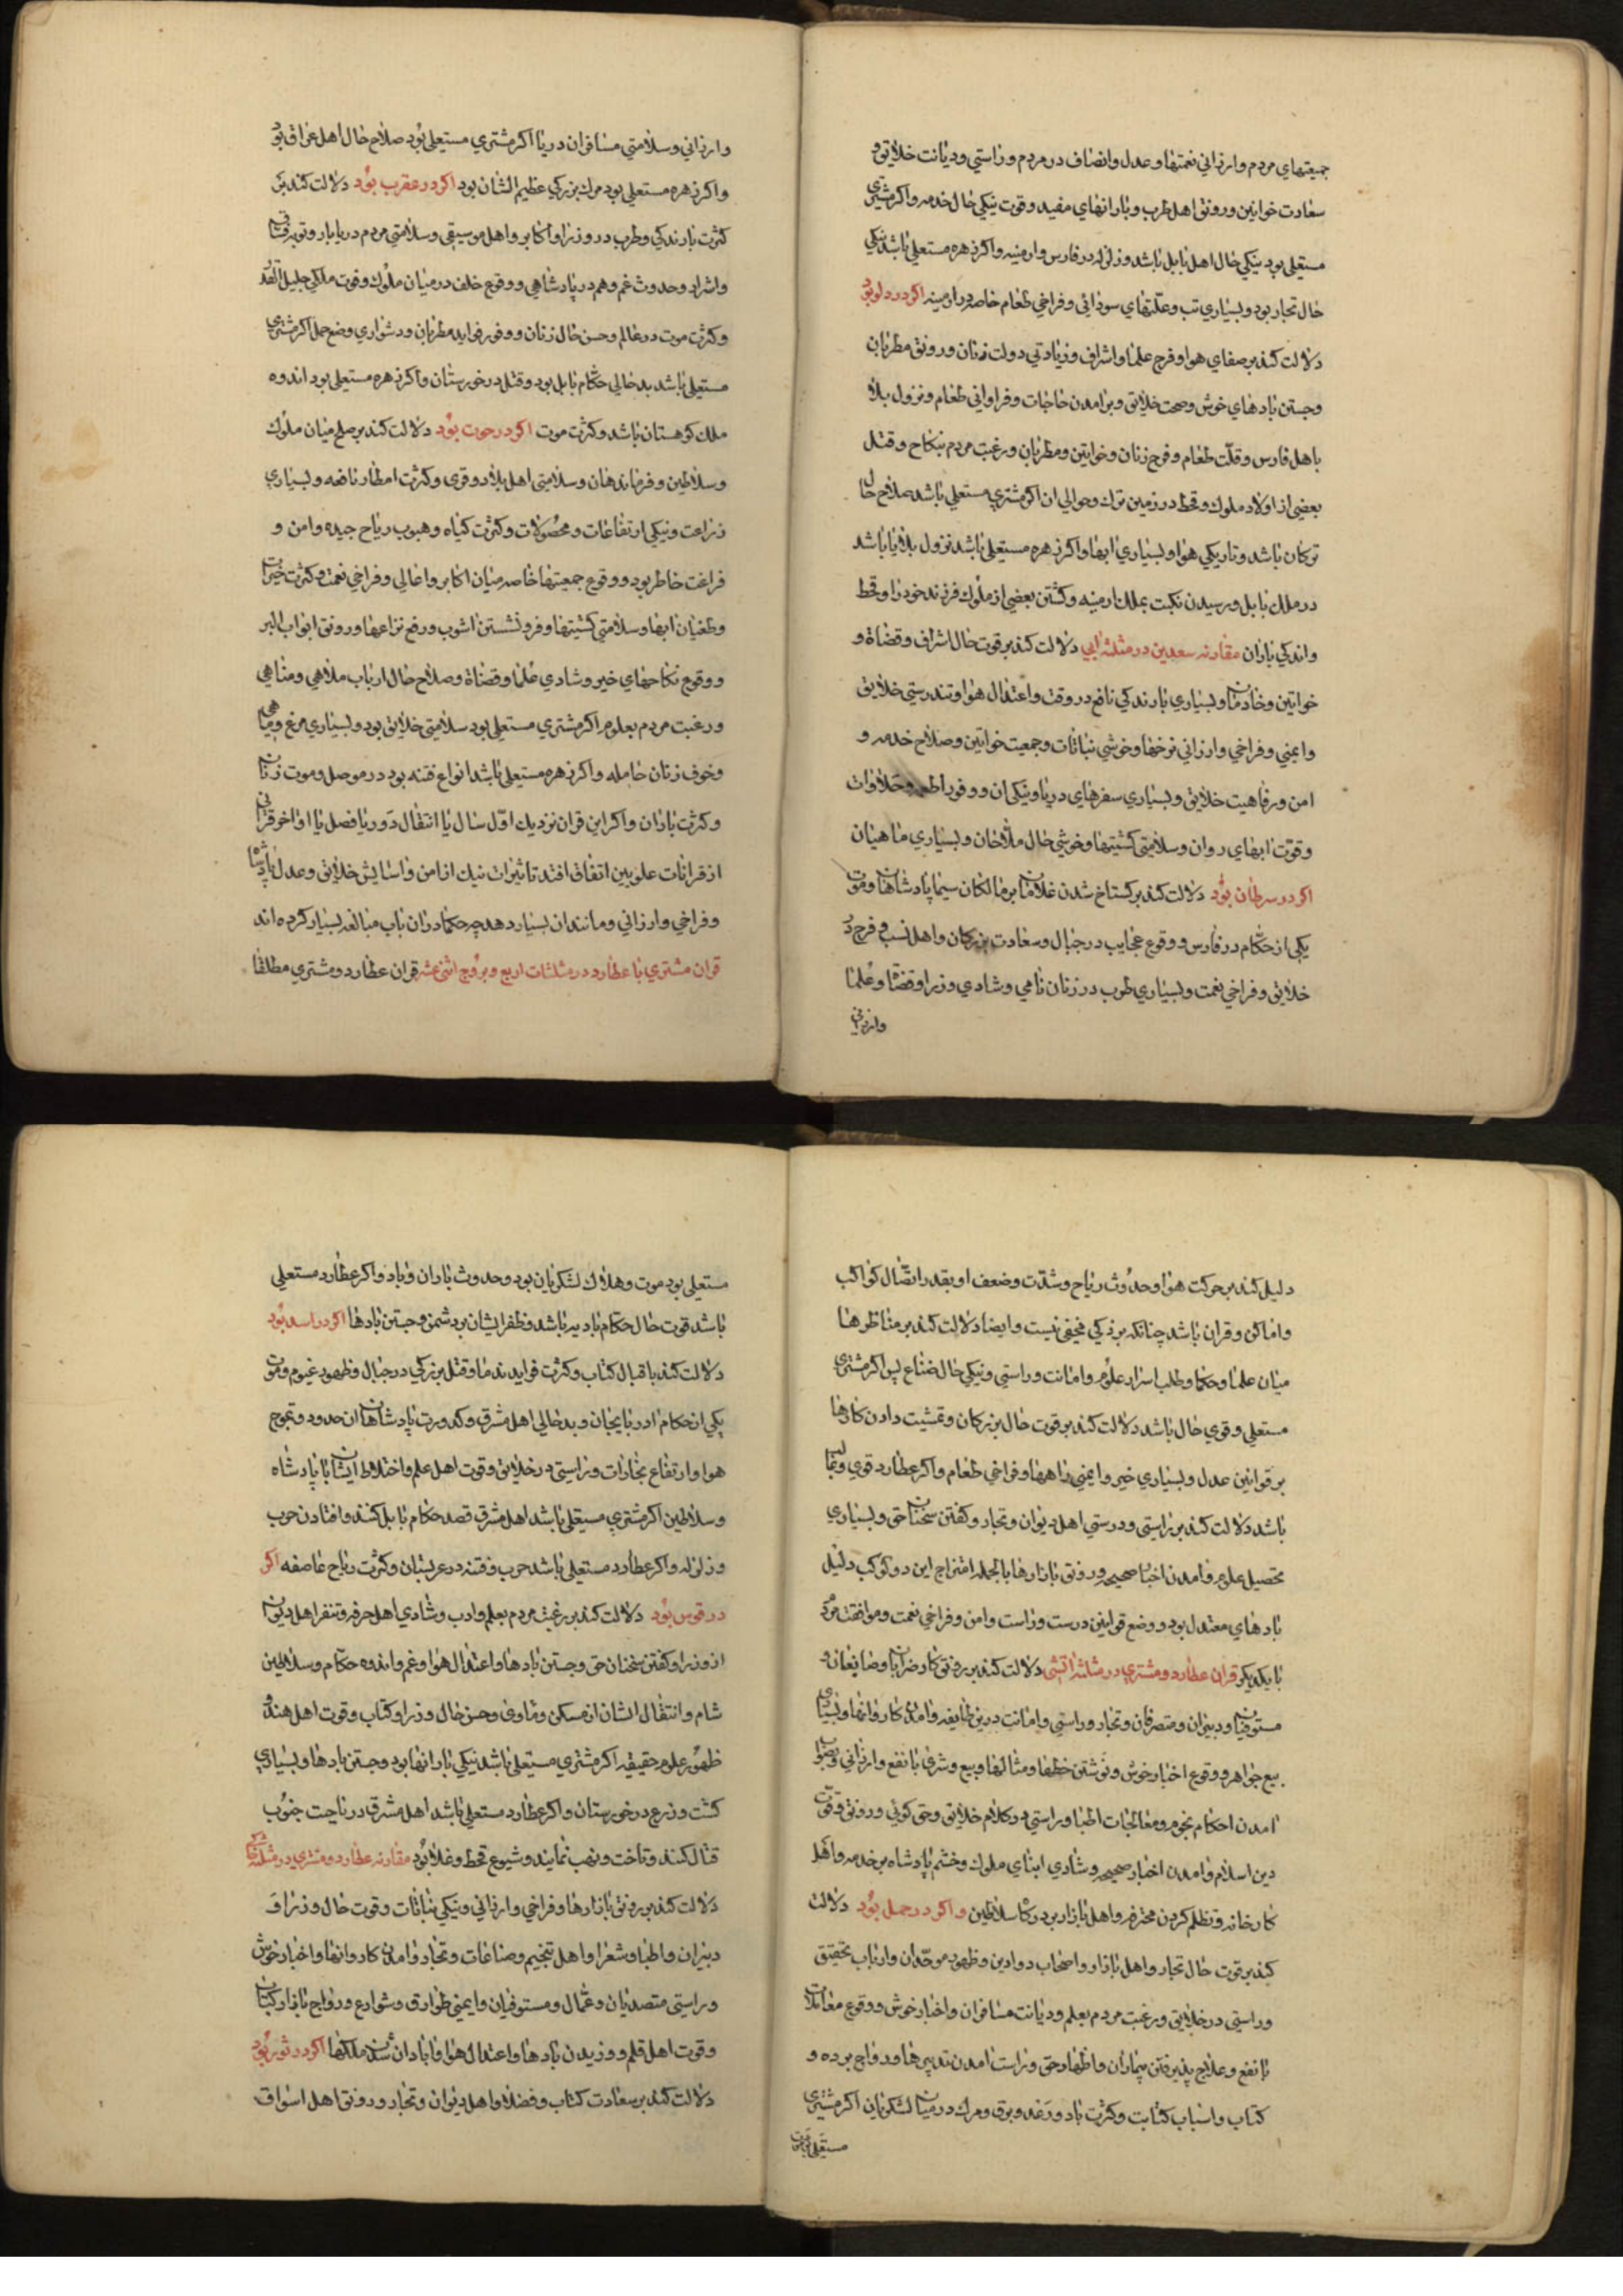 جمیعتهای مردم وارزانی نعمتها وعدل وانصاف در مردم وراستی ودیانت خلایق و
سعادت خواتین ورونق اهل طرب وبارانهای مفید وقوت نیکی حال خدمه واکر مشتری
مستعلی بود نیکی حال اهل بابل باشد وزلزله در فارس وارمنیه واکر زهره مستعلی باشد نیکی
حال تجار بود وبسیاری تب وعلتهای سودائی وفراخی طعام خاصه در ارمینه اکر در دلو بود
دلالت کند بر صفای هوا وفرح علما واشراف وزیادتی دولت زنان ورونق مطربان
وجستن بادهای خوش وصحت خلایق وبرامدن حاجات وفراوانی طعام ونزول بلا
باهل فارس وقلت طعام وفرح زنان وخواتین ومطربان ورغبت مردم بنکاح وقتل
بعضی از اولاد ملوک وقحط در زمین ترک وحوالی ان اکر مشتری مستعلی باشد صلاح حال
ترکان باشد وتاریکی هوا وبسیاری ابها واکر زهره مستعلی باشد نزول بلایا باشد
در ملک بابل ورسیدن نکبت بملک ارمینه وکشتن بعضی از ملوک فرزند خود را وقحط
واندکی باران مقارنه سعدین در مثلثه ابی دلالت کند بر قوت حال اشراف وقضاة و
خواتین وخادمان وبسیاری بارندکی نافع در وقت واعتدال هوا وتندرستی خلایق
وایمنی وفراخی وارزانی نرخها وخوشی نباتات وجمعیت خواتین وصلاح خدمه و
امن ورفاهیت خلایق وبسیاری سفرهای دریا ونیکی ان ووفور اطعمه وحلاوات
وقوت ابهای روان وسلامتی کشتیها وخوشی حال ملاحان وبسیاری ماهیان
اکر در سرطان بود دلالت کند بر کستاخ شدن غلامان بر مالکان سیما پادشاهان وموت
یکی از حکام در فارس ووقوع عجایب در جبال وسعادت بزرکان واهل نسب وفرح
خلایق وفراخی نعمت وبسیاری طرب در زنان نامی وشادی وزرا وقضاة وعلما
وارزانی
وارزانی وسلامتی مسافران دریا اکر مشتری مستعلی بود صلاح حال اهل عراق بود
واکر زهره مستعلی بود مرک بزرکی عظیم الشان بود اکر در عقرب بود دلالت کند بر
کثرت بارندکی وطرب در وزرا واکابر واهل موسیقی وسلامتی مردم دریابار وتوبه فساق
واشرار وحدوث غم وهم در پادشاهی ووقوع خلف در میان ملوک وفوت ملکی جلیل القدر
وکثرت موت در عالم وحسن حال زنان ووفور فواید مطربان ودشواری وضع حمل اکر مشتری
مستعلی باشد بد حالی حکام بابل بود وقتل در خوزستان واکر زهره مستعلی بود اندوه
ملک کوهستان باشد وکثرت موت اکر در حوت بود دلالت کند بر صلح میان ملوک
وسلاطین وفرماندهان وسلامتی اهل بلاد وقری وکثرت امطار نافعه وبسیاری
زراعت ونیکی ارتفاعات ومحصولات وکثرت کیاه وهبوب ریاح جیده وامن و
فراغت خاطر بود ووقوع جمعیتها خاصه میان اکابر واعالی وفراخی نعمت وکثرت خیرات
وطغیان ابها وسلامتی کشتیها وفرونشستن اشوب ورفع نزاعها ورونق ابواب البر
ووقوع نکاحهای خیر وشادی علما وقضاة وصلاح حال ارباب ملاهی ومناهی
ورغبت مردم بعلوم اکر مشتری مستعلی بود سلامتی خلایق بود وبسیاری مرغ وماهی
وخوف زنان حامله واکر زهره مستعلی باشد انواع فتنه بود در موصل وموت زنان
وکثرت باران واکر این قران نزدیک اول سال یا انتقال دور یا فصل یا اواخر قرانی
از قرانات علویین اتفاق افتد تاثیرات نیک از امن واسایش خلایق وعدل پادشاه
وفراخی وارزانی ومانند ان بسیار دهد چه حکما در ان باب مبالغه بسیار کرده اند
قران مشتری با عطارد در مثلثات اربع وبروج اثنی عشر قران عطارد ومشتری مطلقا
دلیل کند بر حرکت هوا وحدوث ریاح وشدت وضعف او بقدر اتصال کواکب
واماکن وقران باشد چنانکه بر ذکی مخفی نیست وایضا دلالت کند بر مناظرها
میان علما وحکما وطلب اسرار علوم وامانت وراستی ونیکی حال صناع پس اکر مشتری
مستعلی وقوی حال باشد دلالت کند بر قوت حال بزرکان وتمشیت دادن کارها
بر قوانین عدل وبسیاری خیر وایمنی راهها وفراخی طعام واکر عطارد قوی وغالب
باشد دلالت کند بر راستی ودرستی اهل دیوان وتجار وکفتن سخنان حق وبسیاری
تحصیل علوم وامدن اخبار صحیحه ورونق بازارها بالجمله امتزاج این دو کوکب دلیل
بادهای معتدل بود ووضع قوانین درست وراست وامن وفراخی نعمت وموافقت مردم
با یکدیکر قران عطارد ومشتری در مثلثه اتشی دلالت کند بر رونق کار ضرابان وصانعان و
مستوفیان ودبیران ومتصرفان وتجار وراستی وامانت درین طایفه وامدن کاروانها وبسیاری
بیع جواهر ووقوع اخبار خوش ونوشتن خطها ومثالها وبیع وشری با نفع وارزانی وصواب
امدن احکام نجوم ومعالجات اطبا وراستی در کلام خلایق وحق کوئی ورونق وقوت
دین اسلام وامدن اخبار صحیحه وشادی ابنای ملوک وخشم پادشاه بر خدمه واهل
کارخانه وتظلم کردن محترفه واهل بازار بدرکاه سلاطین واکر در حمل بود دلالت
کند بر قوت حال تجار واهل بازار واصحاب دواوین وظهور موحدان وارباب تحقیق
وراستی در خلایق ورغبت مردم بعلم ودیانت مسافران واخبار خوش ووقوع معاملات
با نفع وعلاج پذیرفتن بیماران واظهار حق وراست امدن تدبیرها ورواج برده و
کتاب واسباب کتابت وکثرت باد ورعد وبرق ومرک در میان لشکریان اکر مشتری
مستعلی بود موت
مستعلی بود موت وهلاک لشکریان بود وحدوث باران وباد واکر عطارد مستعلی
باشد قوت حال حکام بادیه باشد وظفر ایشان بر دشمن وجستن بادها اکر در اسد بود
دلالت کند باقبال کتاب وکثرت فواید ندما وقتل بزرکی در جبال وظهور غیوم وموت
یکی از حکام ادربایجان وبد حالی اهل مشرق وکدورت پادشاهان ان حدود وتموج
هوا وارتفاع بخارات وراستی در خلایق وقوت اهل علم واختلاط ایشان با پادشاه
وسلاطین اکر مشتری مستعلی باشد اهل مشرق قصد حکام بابل کنند وافتادن حرب
وزلزله واکر عطارد مستعلی باشد حرب وفتنه در عربستان وکثرت ریاح عاصفه اکر
در قوس بود دلالت کند بر رغبت مردم بعلم وادب وشادی اهل حرفه وتنفر اهل دیوان
از وزرا وکفتن سخنان حق وجستن بادها واعتدال هوا وغم واندوه حکام وسلاطین
شام وانتقال ایشان از مسکن وماوی وحسن حال وزرا وکتاب وقوت اهل هند و
ظهور علوم حقیقیه اکر مشتری مستعلی باشد نیکی بارانها بود وجستن بادها وبسیاری
کشت وزرع در خوزستان واکر عطارد مستعلی باشد اهل مشرق در ناحیت جنوب
قتال کنند وتاخت ونهب نمایند وشیوع قحط وغلا بود مقارنه عطارد ومشتری در مثلثه خاکی
دلالت کند بر رونق بازارها وفراخی وارزانی ونیکی نباتات وقوت حال وزرا و
دبیران واطبا وشعرا واهل تنجیم وصناعات وتجار وامدن کاروانها واخبار خوش
وراستی متصدیان وعمال ومستوفیان وایمنی طوارق وشوارع ورواج بازار کتاب
وقوت اهل قلم ووزیدن بادها واعتدال هوا واباדان شدن ملکها اکر در ثور بود
دلالت کند بر سعادت کتاب وفضلا واهل دیوان وتجار ورونق اهل اسواق